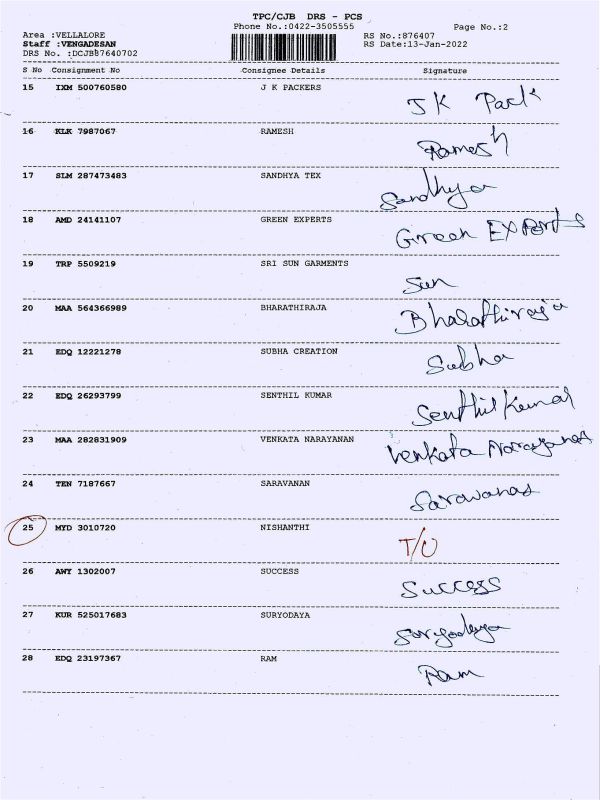 TPC/CJB DRS - PCS
Phone No.:0422-3505555 Page No.:2
Area :VELLALORE RS No.:876407
Staff :VENGADESAN RS Date:13-Jan-2022
DRS No. :DCJBB7640702
S No Consignment No Consignee Details Signature
15 IXM 500760580 J K PACKERS JK Pack
16 KLK 7987067 RAMESH Ramesh
17 SLM 287473483 SANDHYA TEX Sandhya
18 AMD 24141107 GREEN EXPERTS Green EXPerts
19 TRP 5509219 SRI SUN GARMENTS Sun
20 MAA 564366989 BHARATHIRAJA Bharathiraja
21 EDQ 12221278 SUBHA CREATION Subha
22 EDQ 26293799 SENTHIL KUMAR Senthil Kumar
23 MAA 282831909 VENKATA NARAYANAN Venkata Narayanan
24 TEN 7187667 SARAVANAN Saravanan
25 MYD 3010720 NISHANTHI T/O
26 AWY 1302007 SUCCESS Success
27 KUR 525017683 SURYODAYA Suryodaya
28 EDQ 23197367 RAM Ram